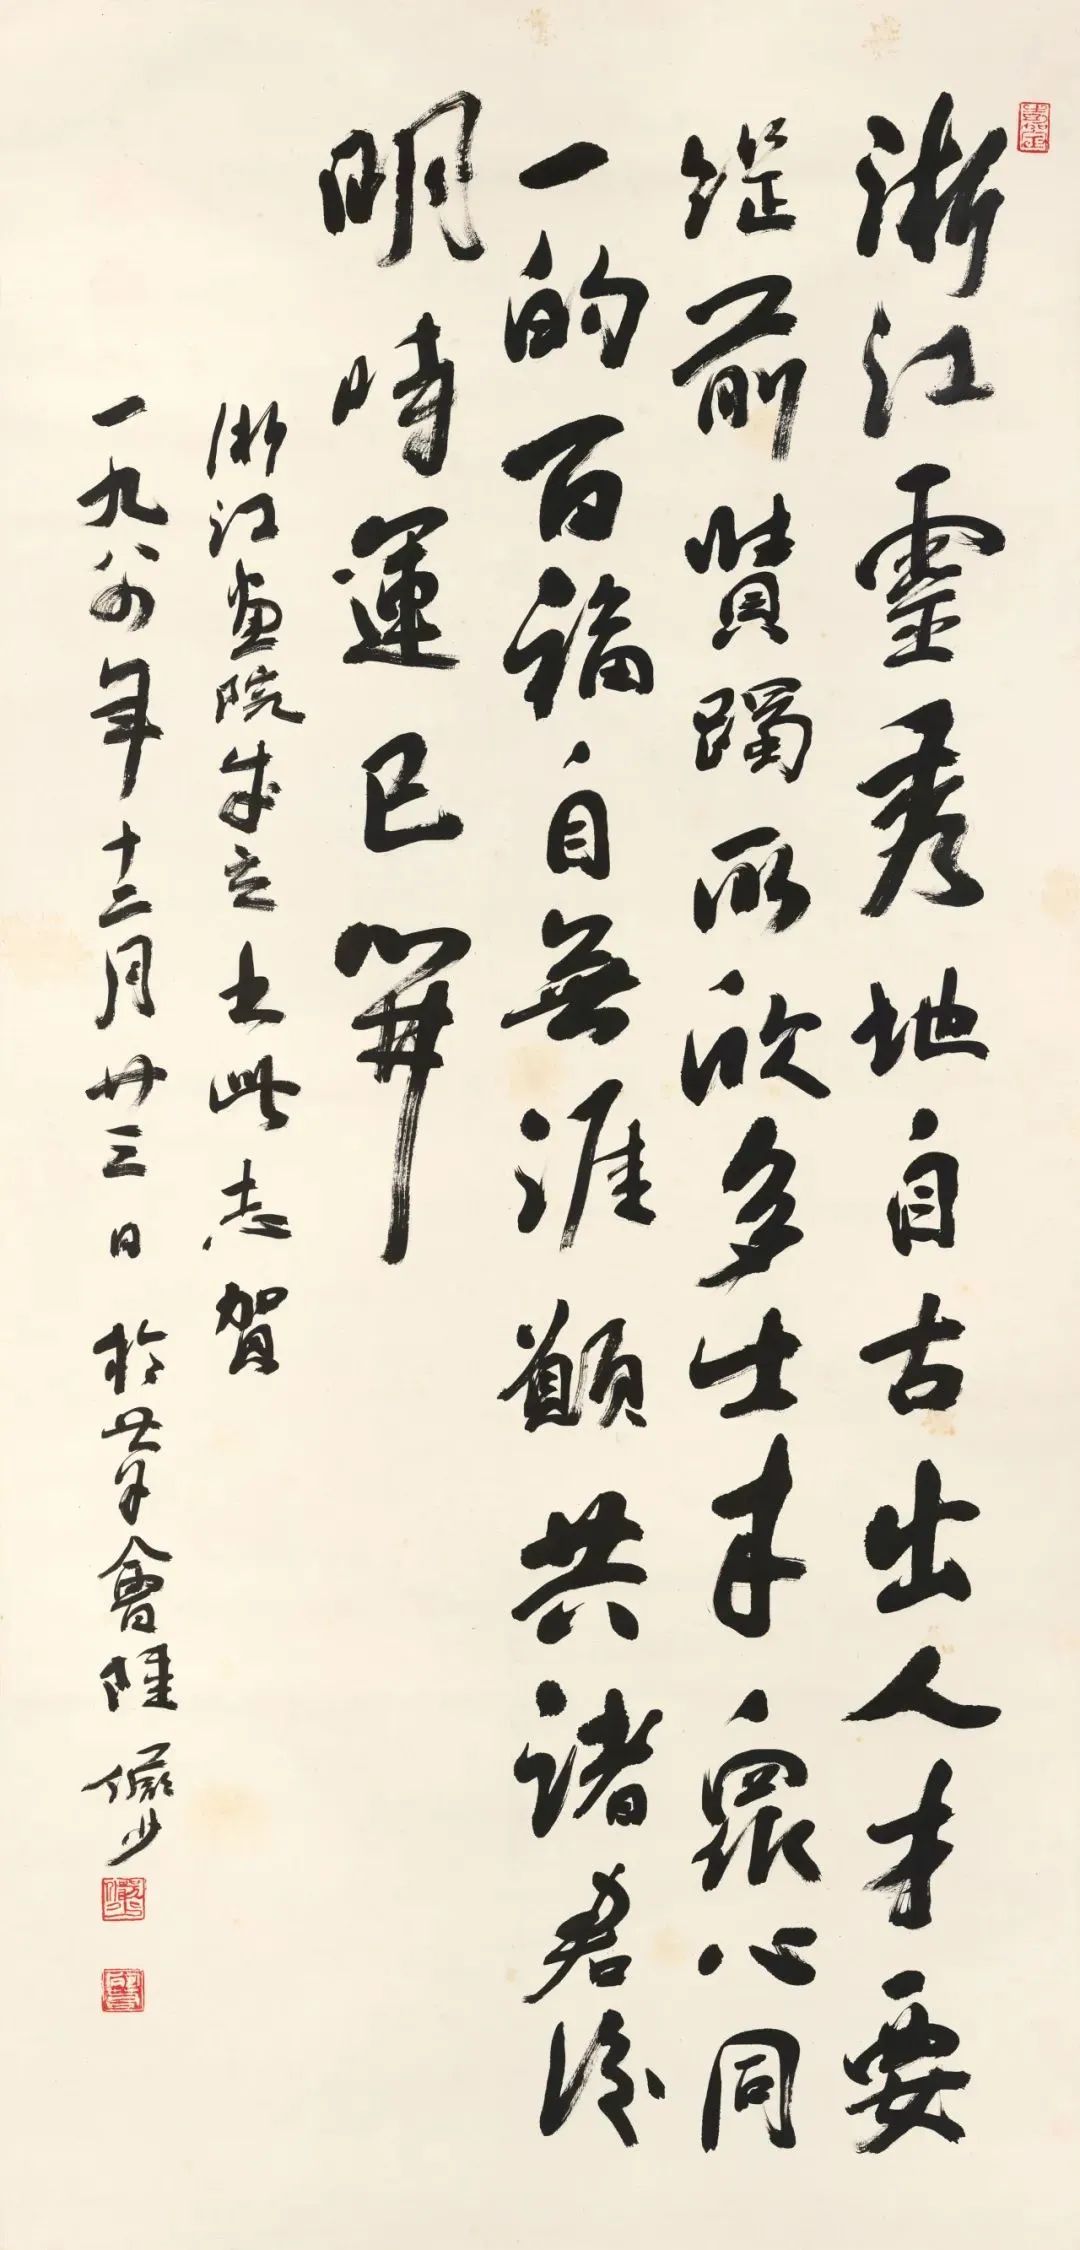 浙江靈秀地自古出人才要
從前賢躅所欣多士來眾心同
一的百福自無涯願共諸君後
明時運已開
浙江畫院成立書此志賀
一九八四年十二月廿三日於會陸儼少